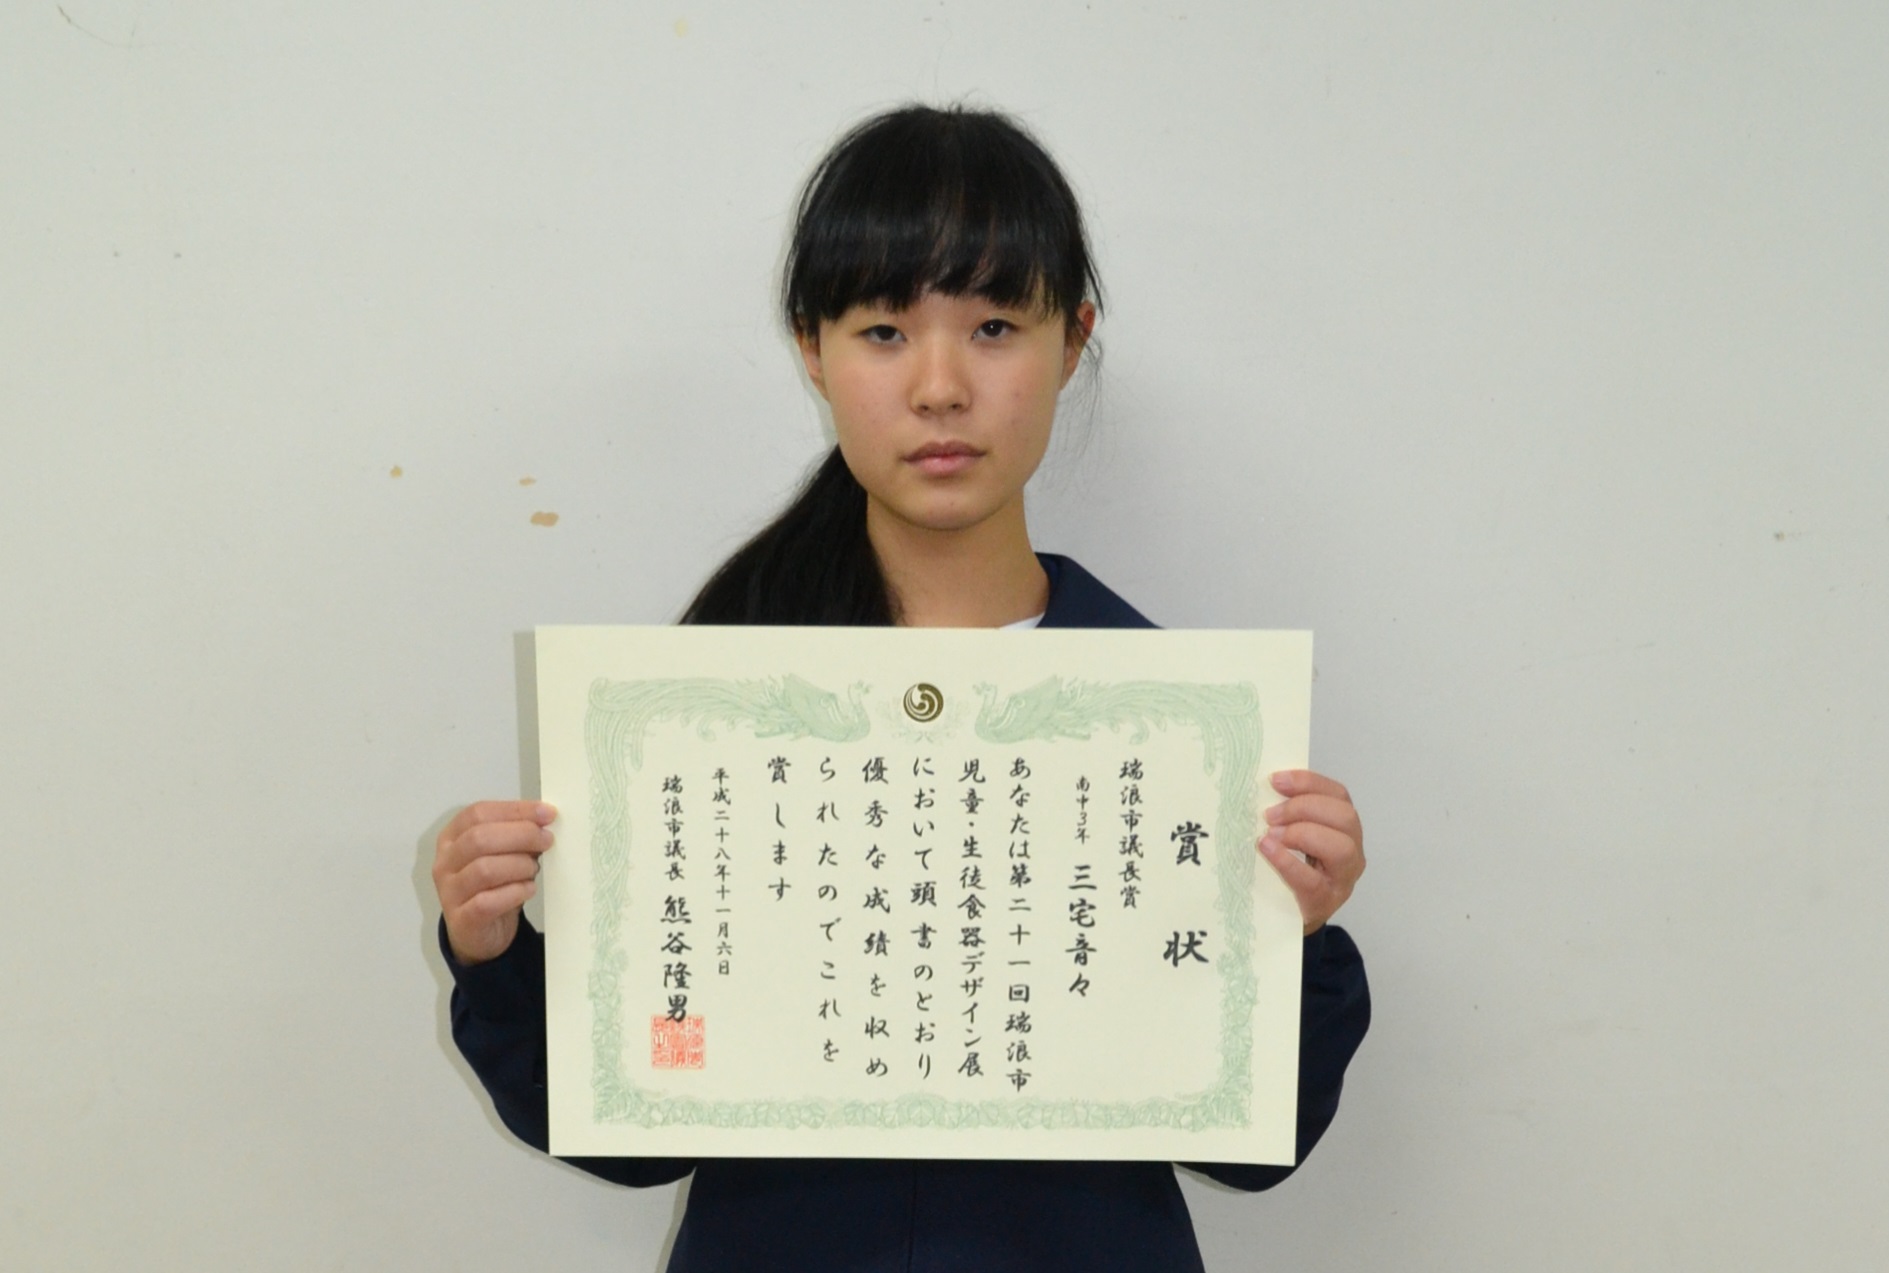 賞状
瑞浪市議長賞
南中3年 三宅音々
あなたは第二十一回瑞浪市
児童・生徒食器デザイン展
において頭書のとおり
優秀な成績を収め
られたのでこれを
賞します
平成二十八年十一月六日
瑞浪市議長 熊谷隆男